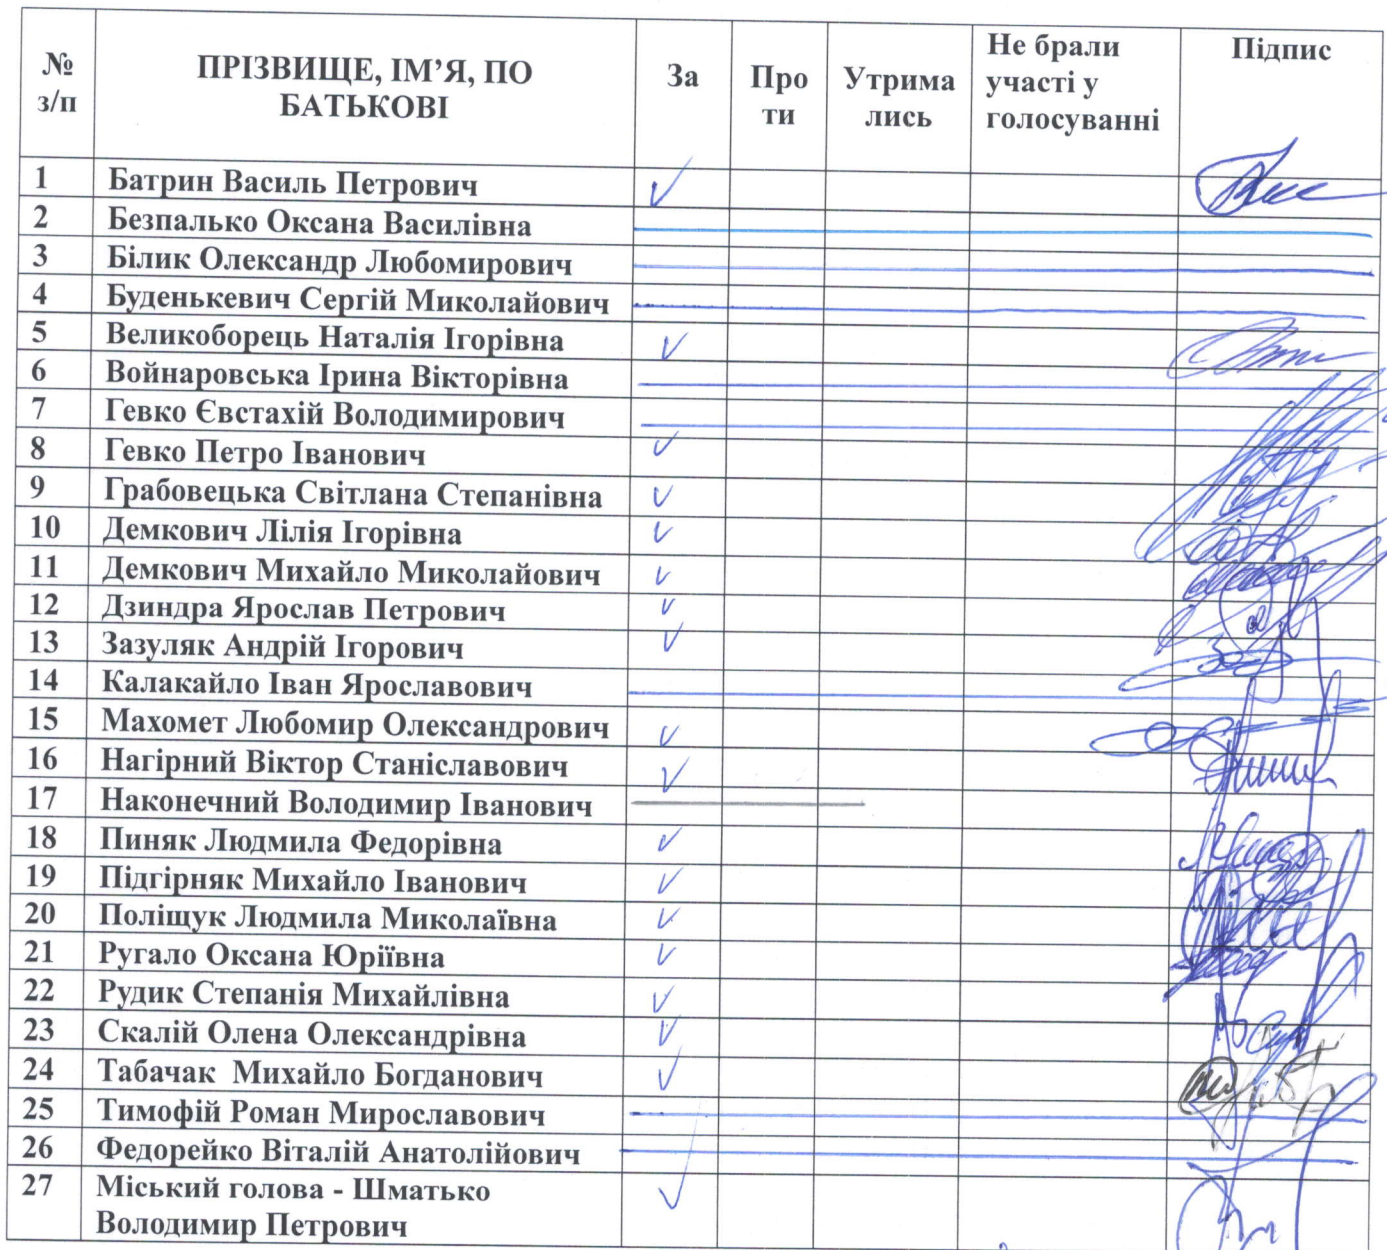 № з/п ПРІЗВИЩЕ, ІМ’Я, ПО БАТЬКОВІ За Про ти Утрима лись Не брали участі у голосуванні Підпис
1 Батрин Василь Петрович
2 Безпалько Оксана Василівна
3 Білик Олександр Любомирович
4 Буденькевич Сергій Миколайович
5 Великоборець Наталія Ігорівна
6 Войнаровська Ірина Вікторівна
7 Гевко Євстахій Володимирович
8 Гевко Петро Іванович
9 Грабовецька Світлана Степанівна
10 Демкович Лілія Ігорівна
11 Демкович Михайло Миколайович
12 Дзиндра Ярослав Петрович
13 Зазуляк Андрій Ігорович
14 Калакайло Іван Ярославович
15 Махомет Любомир Олександрович
16 Нагірний Віктор Станіславович
17 Наконечний Володимир Іванович
18 Пиняк Людмила Федорівна
19 Підгірняк Михайло Іванович
20 Поліщук Людмила Миколаївна
21 Ругало Оксана Юріївна
22 Рудик Степанія Михайлівна
23 Скалій Олена Олександрівна
24 Табачак Михайло Богданович
25 Тимофій Роман Мирославович
26 Федорейко Віталій Анатолійович
27 Міський голова - Шматько
Володимир Петрович